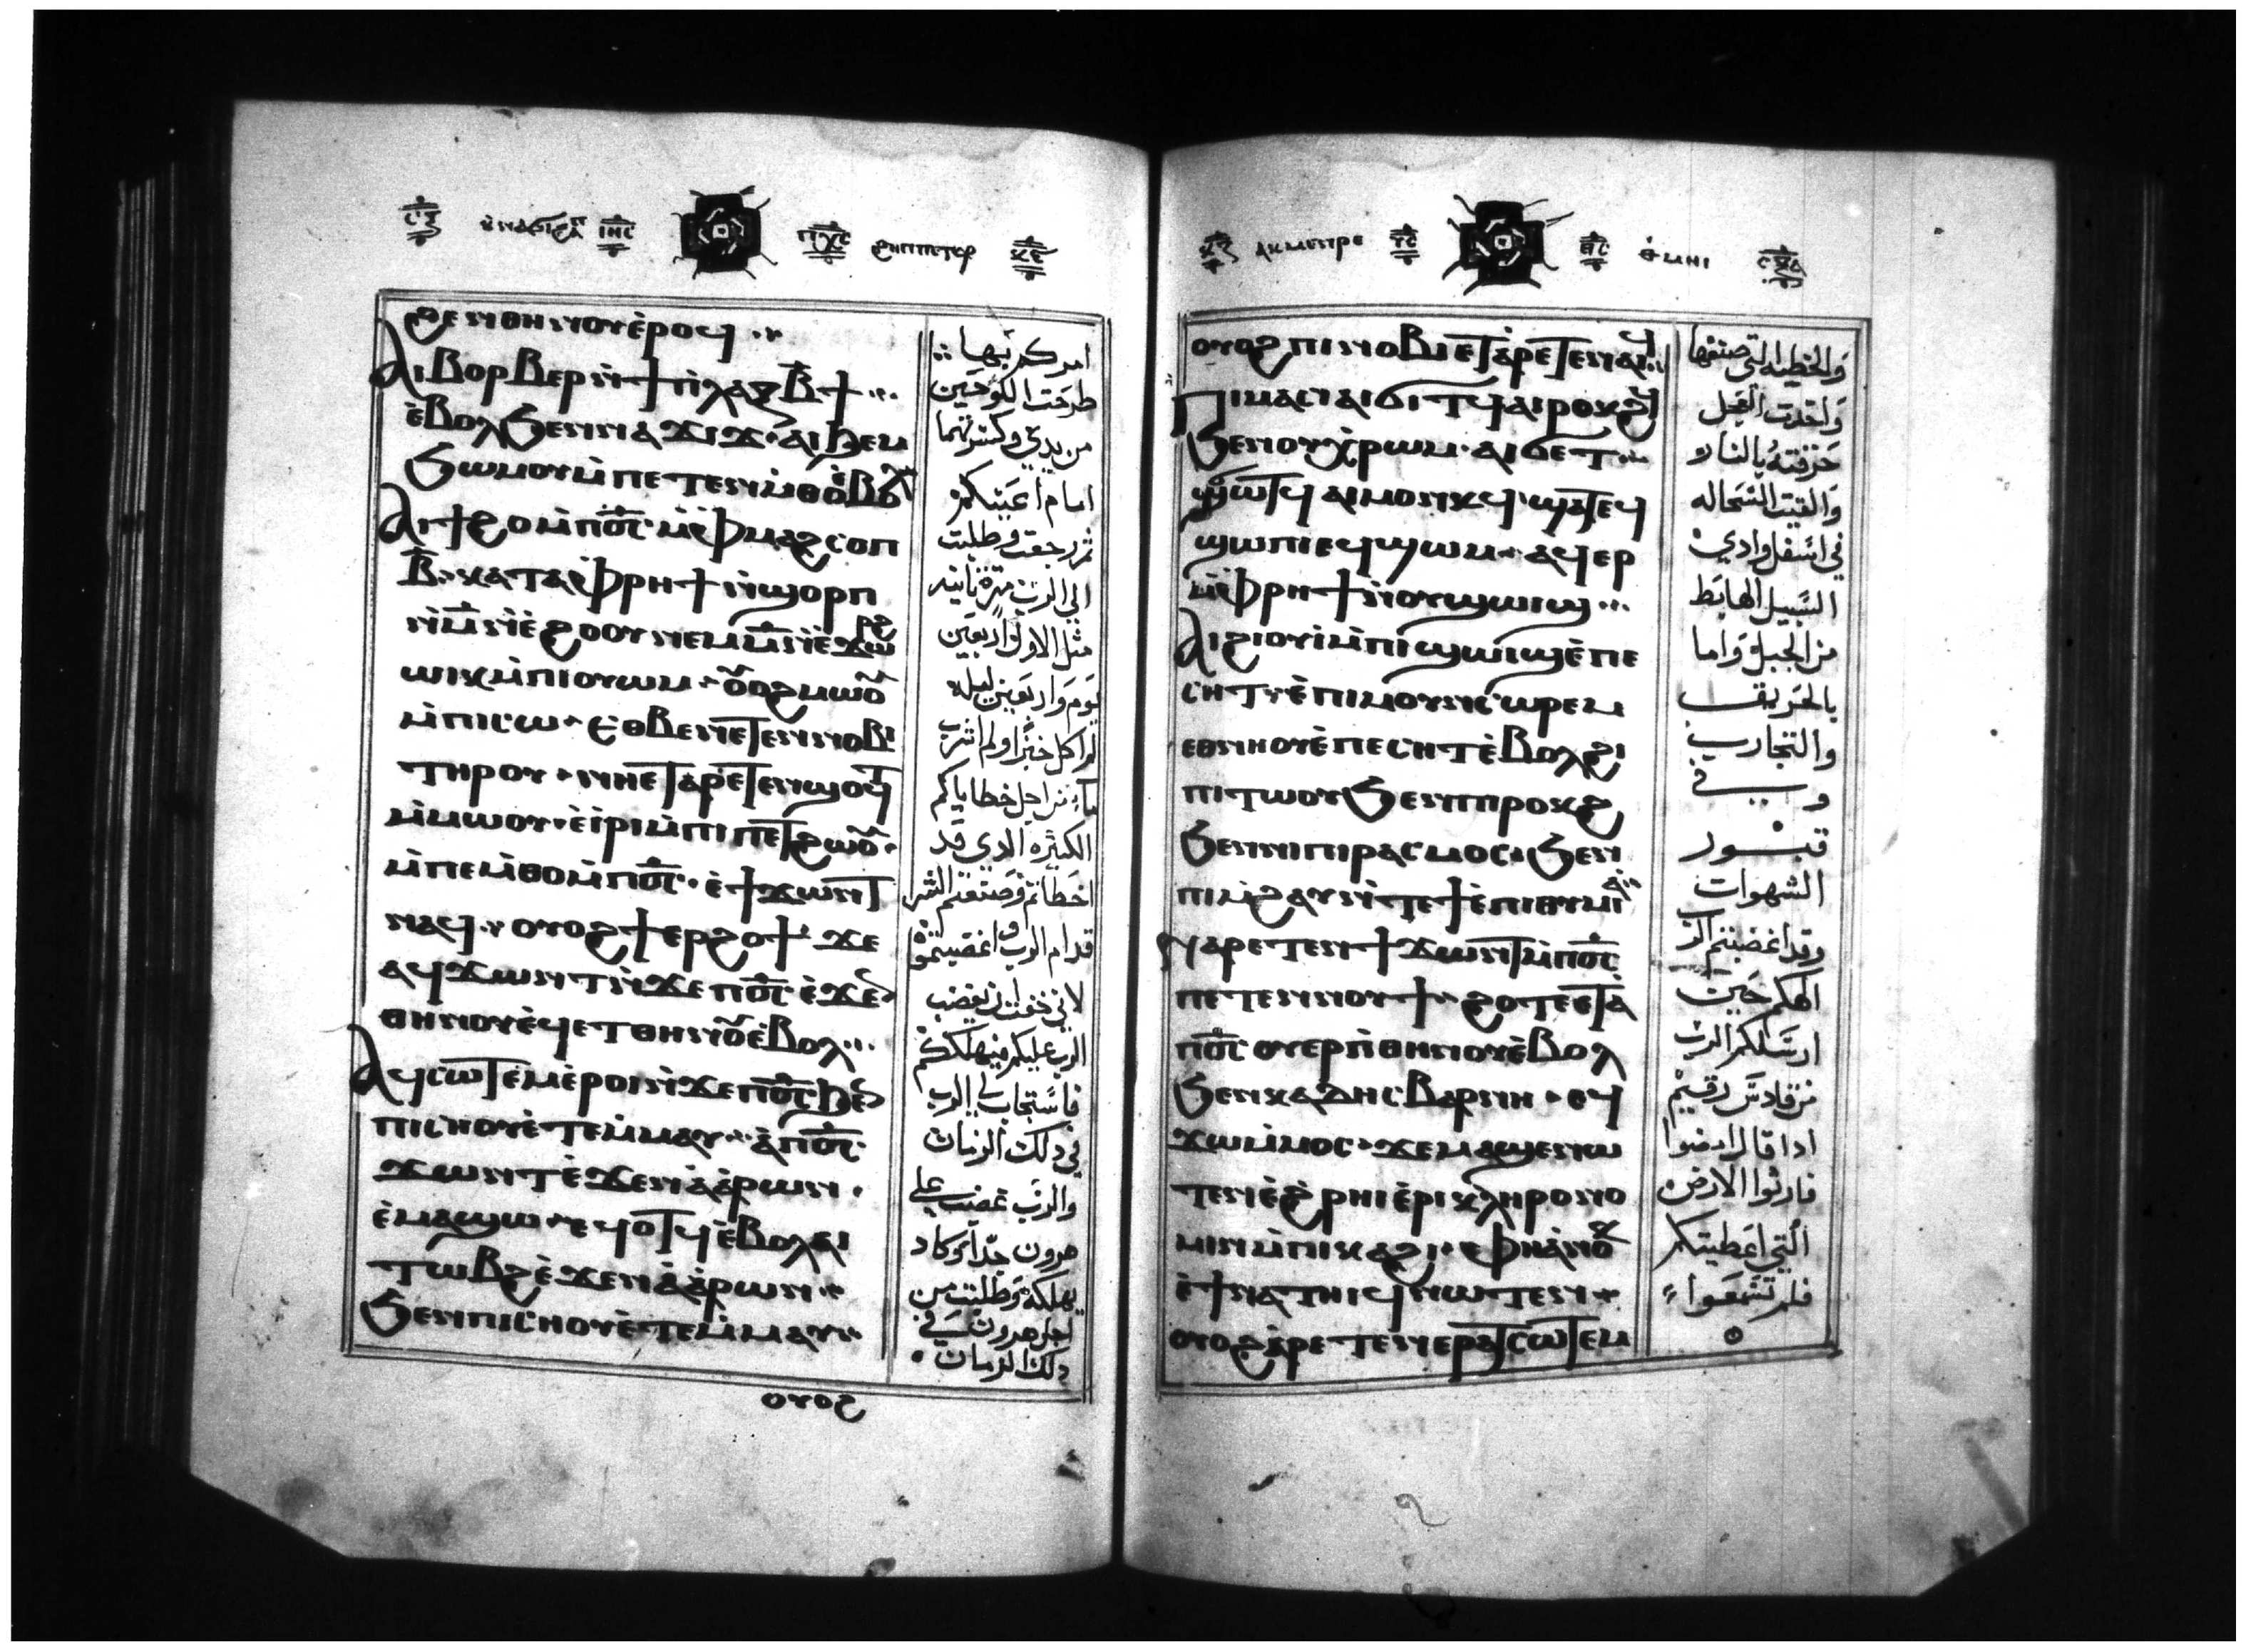 ⲑⲉⲛⲑⲏⲛⲟⲩ ⲉ̀ⲣⲟϥ
ⲁⲓⲃⲟⲣⲃⲉⲣ ⲛ̀ϯⲡⲗⲁⲝ ⲃ̅ϯ
ⲉ̀ⲃⲟⲗϧⲉⲛⲛⲁϫⲓϫ ⲁⲓϧⲉⲙ
ϧⲱⲙⲟⲩ ⲙ̀ⲡⲉⲧⲉⲛⲙ̀ⲑⲟ ⲉ̀ⲃⲟⲗ
ⲁⲓϯϩⲟ ⲙ̀ⲡⲟ̅ⲥ̅ ⲙ̀ⲫⲙⲁϩⲥⲟⲡ
ⲃ̅ ⲕⲁⲧⲁ ⲫⲣⲏϯ ⲛ̀ϣⲟⲣⲡ
ⲛ̀ⲙ̅ ⲛ̀ⲉ̀ϩⲟⲟⲩ ⲛⲉⲙ ⲙ̅ ⲛ̀ⲉ̀ϫⲱⲣϩ
ⲱⲓⲕ ⲙ̀ⲡⲓⲟⲩⲱⲙ ⲟⲩⲟϩ ⲙⲱⲟⲩ
ⲙ̀ⲡⲓⲥⲱ ⲉⲑⲃⲉ ⲛⲉⲧⲉⲛⲛⲟⲃⲓ
ⲧⲏⲣⲟⲩ ⲛⲏⲉⲧⲁⲣⲉⲧⲉⲛ
ⲙ̀ⲙⲱⲟⲩ ⲉ̀ⲓⲣⲓ ⲙ̀ⲡⲓⲡⲉⲧϩⲱⲟⲩ
ⲙ̀ⲡⲉⲙ̀ⲑⲟ ⲙ̀ⲡⲟ̅ⲥ̅ ⲉ̀ϯϫⲱⲛⲧ
ⲛⲁϥ ⲟⲩⲟϩ ϯⲉⲣϩⲟϯ ϫⲉ
ⲁϥϫⲱⲛⲧ ⲛ̀ϫⲉ ⲡⲟ̅ⲥ̅ ⲉ̀ϫⲉⲛ
ⲑⲏⲛⲟⲩ ⲉ̀ϥⲉⲧⲑⲏⲛⲟⲩ ⲉ̀ⲃⲟⲗ
ⲁϥⲥⲱⲧⲉⲙ ⲉ̀ⲣⲟⲓ ⲛ̀ϫⲉ ⲡⲟ̅ⲥ̅ ϧⲉⲛ
ⲡⲓⲥⲏⲟⲩ ⲉ̀ⲧⲉⲙⲙⲁⲩ ⲁ̀ⲡⲟ̅ⲥ̅
ϫⲱⲛⲧ ⲉ̀ϫⲉⲛ ⲁ̀ⲁ̀ⲣⲱⲛ
ⲉ̀ⲙⲁϣⲱ ⲉϥⲟⲧϥ ⲉ̀ⲃⲟⲗ ⲁⲓ
ⲧⲱⲃϩ ⲉ̀ϫⲉⲛ ⲁ̀ⲁ̀ⲣⲱⲛ
ϧⲉⲛⲡⲓⲥⲏⲟⲩ ⲉ̀ⲧⲉⲙ̀ⲙⲁⲩ
ⲟⲩⲟϩ
امركم بها
طرحت اللوحين
من يدي وكسرتهما
امام اعينكم
ثم رجعت وطلبت
الي الرب مرة ثانيه
مثل الاول اربعين
يوم واربعين ليله
لم اكل خبزا ولم اشرب
ماء من اجل خطاياكم
الكثيره الدي قد
اخطاتم وصنعتم الشر
قدام الرب واغضبتموا
لاني خفت ان يغضب
الرب عليكم فيهلككم
فاستجاب لي الرب
في دلك الزمان
والرب غضب علي
هرون جدا وكاد
يهلكه وطلبت من
اجل هرون في
دلك الزمان
ⲟⲩⲟϩ ⲡⲓⲛⲟⲃⲓ ⲉⲧⲁⲣⲉⲧⲉⲛⲁⲓϥ
ⲡⲓⲙⲁⲥⲓ ⲁⲓϭⲓⲧϥ ⲁⲓⲣⲟⲕϩϥ
ϧⲉⲛⲟⲩⲭⲣⲱⲙ ⲁⲓϭⲉⲧ
ϧⲱⲧϥ ⲁⲓⲙⲟⲛⲕϥ ϣⲁⲧⲉϥ
ϣⲱⲡⲓ ⲉϥϣⲱⲙ ⲁϥⲉⲣ
ⲙ̀ⲫⲣⲏϯ ⲛ̀ⲟⲩϣⲱⲓϣ
ⲁⲓϩⲓⲟⲩⲓ̀ ⲙ̀ⲡⲓϣⲱⲓϣ ⲉ̀ⲡⲉ
ⲥⲏⲧ ⲉ̀ⲡⲓⲙⲟⲩⲛⲥⲱⲣⲉⲙ
ⲉⲑⲛⲏⲟⲩ ⲉ̀ⲡⲉⲥⲏⲧ ⲉ̀ⲃⲟⲗϩⲓ
ⲡⲓⲧⲱⲟⲩ ϧⲉⲛⲡⲓⲣⲟⲕϩ
ϧⲉⲛⲛⲓⲡⲓⲣⲁⲥⲙⲟⲥ ϧⲉⲛ
ⲡⲓⲙ̀ϩⲁⲩ ⲛ̀ⲧⲉ ϯⲉ̀ⲡⲓⲑⲩⲙⲓⲁ̀
ⲛⲁⲣⲉⲧⲉⲛϯϫⲱⲛⲧ ⲙ̀ⲡⲟ̅ⲥ̅
ⲡⲉⲧⲉⲛⲛⲟⲩϯ ϩⲟⲧⲉ ⲉⲧⲁ
ⲡⲟ̅ⲥ̅ ⲟⲩⲉⲣⲡ ⲑⲏⲛⲟⲩ ⲉ̀ⲃⲟⲗ
ϧⲉⲛ ⲕⲁⲇⲏⲥ ⲃⲁⲣⲛⲏ ⲉϥ
ϫⲱ ⲙ̀ⲙⲟⲥ ϫⲉ ⲙⲁϣⲉⲛⲱ
ⲧⲉⲛ ⲉ̀ϩ̀ⲣⲏⲓ ⲉ̀ⲣⲓⲕⲗⲏⲣⲟⲛⲟ
ⲙⲓⲛ ⲙ̀ⲡⲓⲕⲁϩⲓ ⲉ ⲫⲏ ⲁ̀ⲛⲟⲕ
ⲉ̀ϯⲛⲁⲧⲏⲓϥ ⲛⲱⲧⲉⲛ
ⲟⲩⲟϩ ⲁ̀ⲣⲉⲧⲉⲛⲉⲣⲁⲧⲥⲱⲧⲉⲙ
والخطيه التي صنعتها
واخدت العجل
حرقته بالنار
والقيت السحاله
في اسفل وادي
السبيل الهابط
من الجبل واما
بالحريق
والتجارب
وفي
قبور
الشهوات
وقد اغضبتم الرب
الهكم حين
ارسلكم الرب
من قادس رقيم
ادا قال امضوا
فارثوا الارض
التي اعطيتكم
فلم تسمعوا